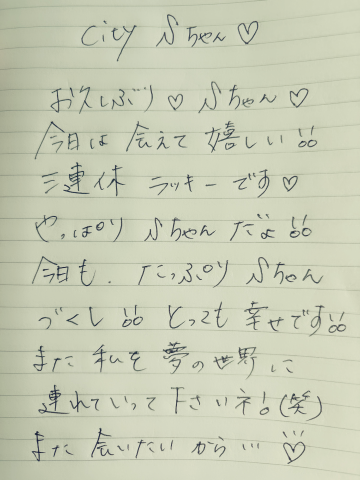 City Sちゃん♡
お久しぶり♡ Sちゃん♡
今日は会えて嬉しい!!
三連休 ラッキーです♡
やっぱり Sちゃんだよ!!
今日も、たっぷり Sちゃん
づくし!! とっても幸せです!!
また私を夢の世界に
連れていって下さいネ!(笑)
また会いたいから…♡